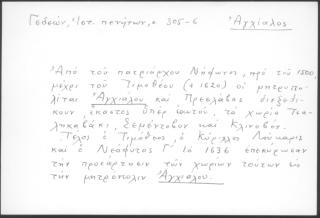 Γεδεών, Ἱστ. πενήτων, σ. 305-6 Ἀγχίαλος
Ἀπό τοῦ πατριάρχου Νήφωνος, πρό τοῦ 1500,
μέχρι τοῦ Τιμοθέου (+1620) οἱ μητροπο-
λῖται Ἀγχιάλου καί Πρεσλάβας διεξεδί-
κουν, ἕκαστος ὑπέρ ἑαυτοῦ, τά χωρία
Σεμέντοβον καί Κλίνοβον.
Τέλος ὁ Τιμόθεος, ὁ Κύριλλος Λούκαρις
καί ὁ Νεόφυτος Γ' τῷ 1636 ἐπεκύρωσαν
τήν προσάρτησιν τῶν χωρίων τούτων εἰς
τήν μητρόπολιν Ἀγχιάλου.